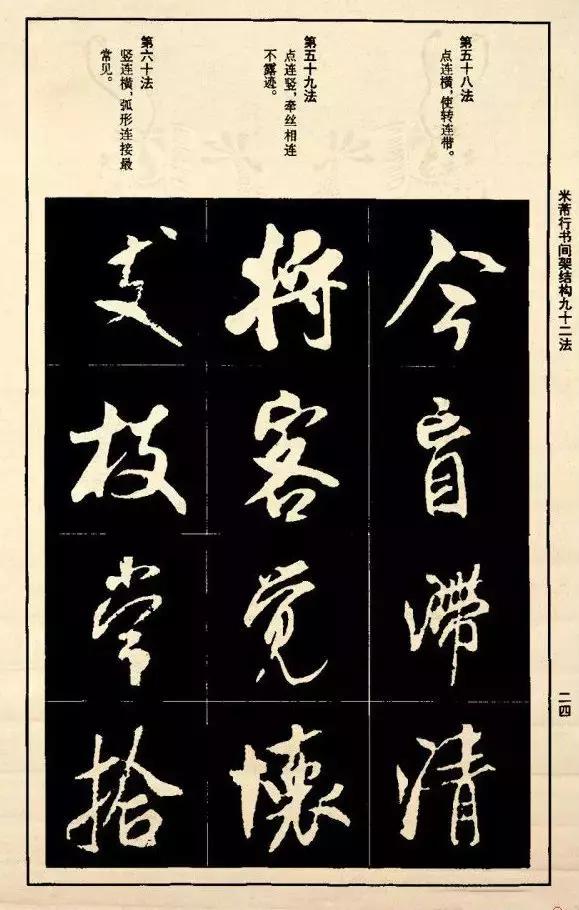 米芾行书间架结构九十二法
二四
第五十八法
点连横，使转连带。
第五十九法
点连竖，牵丝相连
不露迹。
第六十法
竖连横，弧形连接最
常见。
今盲滞清
将客觉怀
支枝常拾